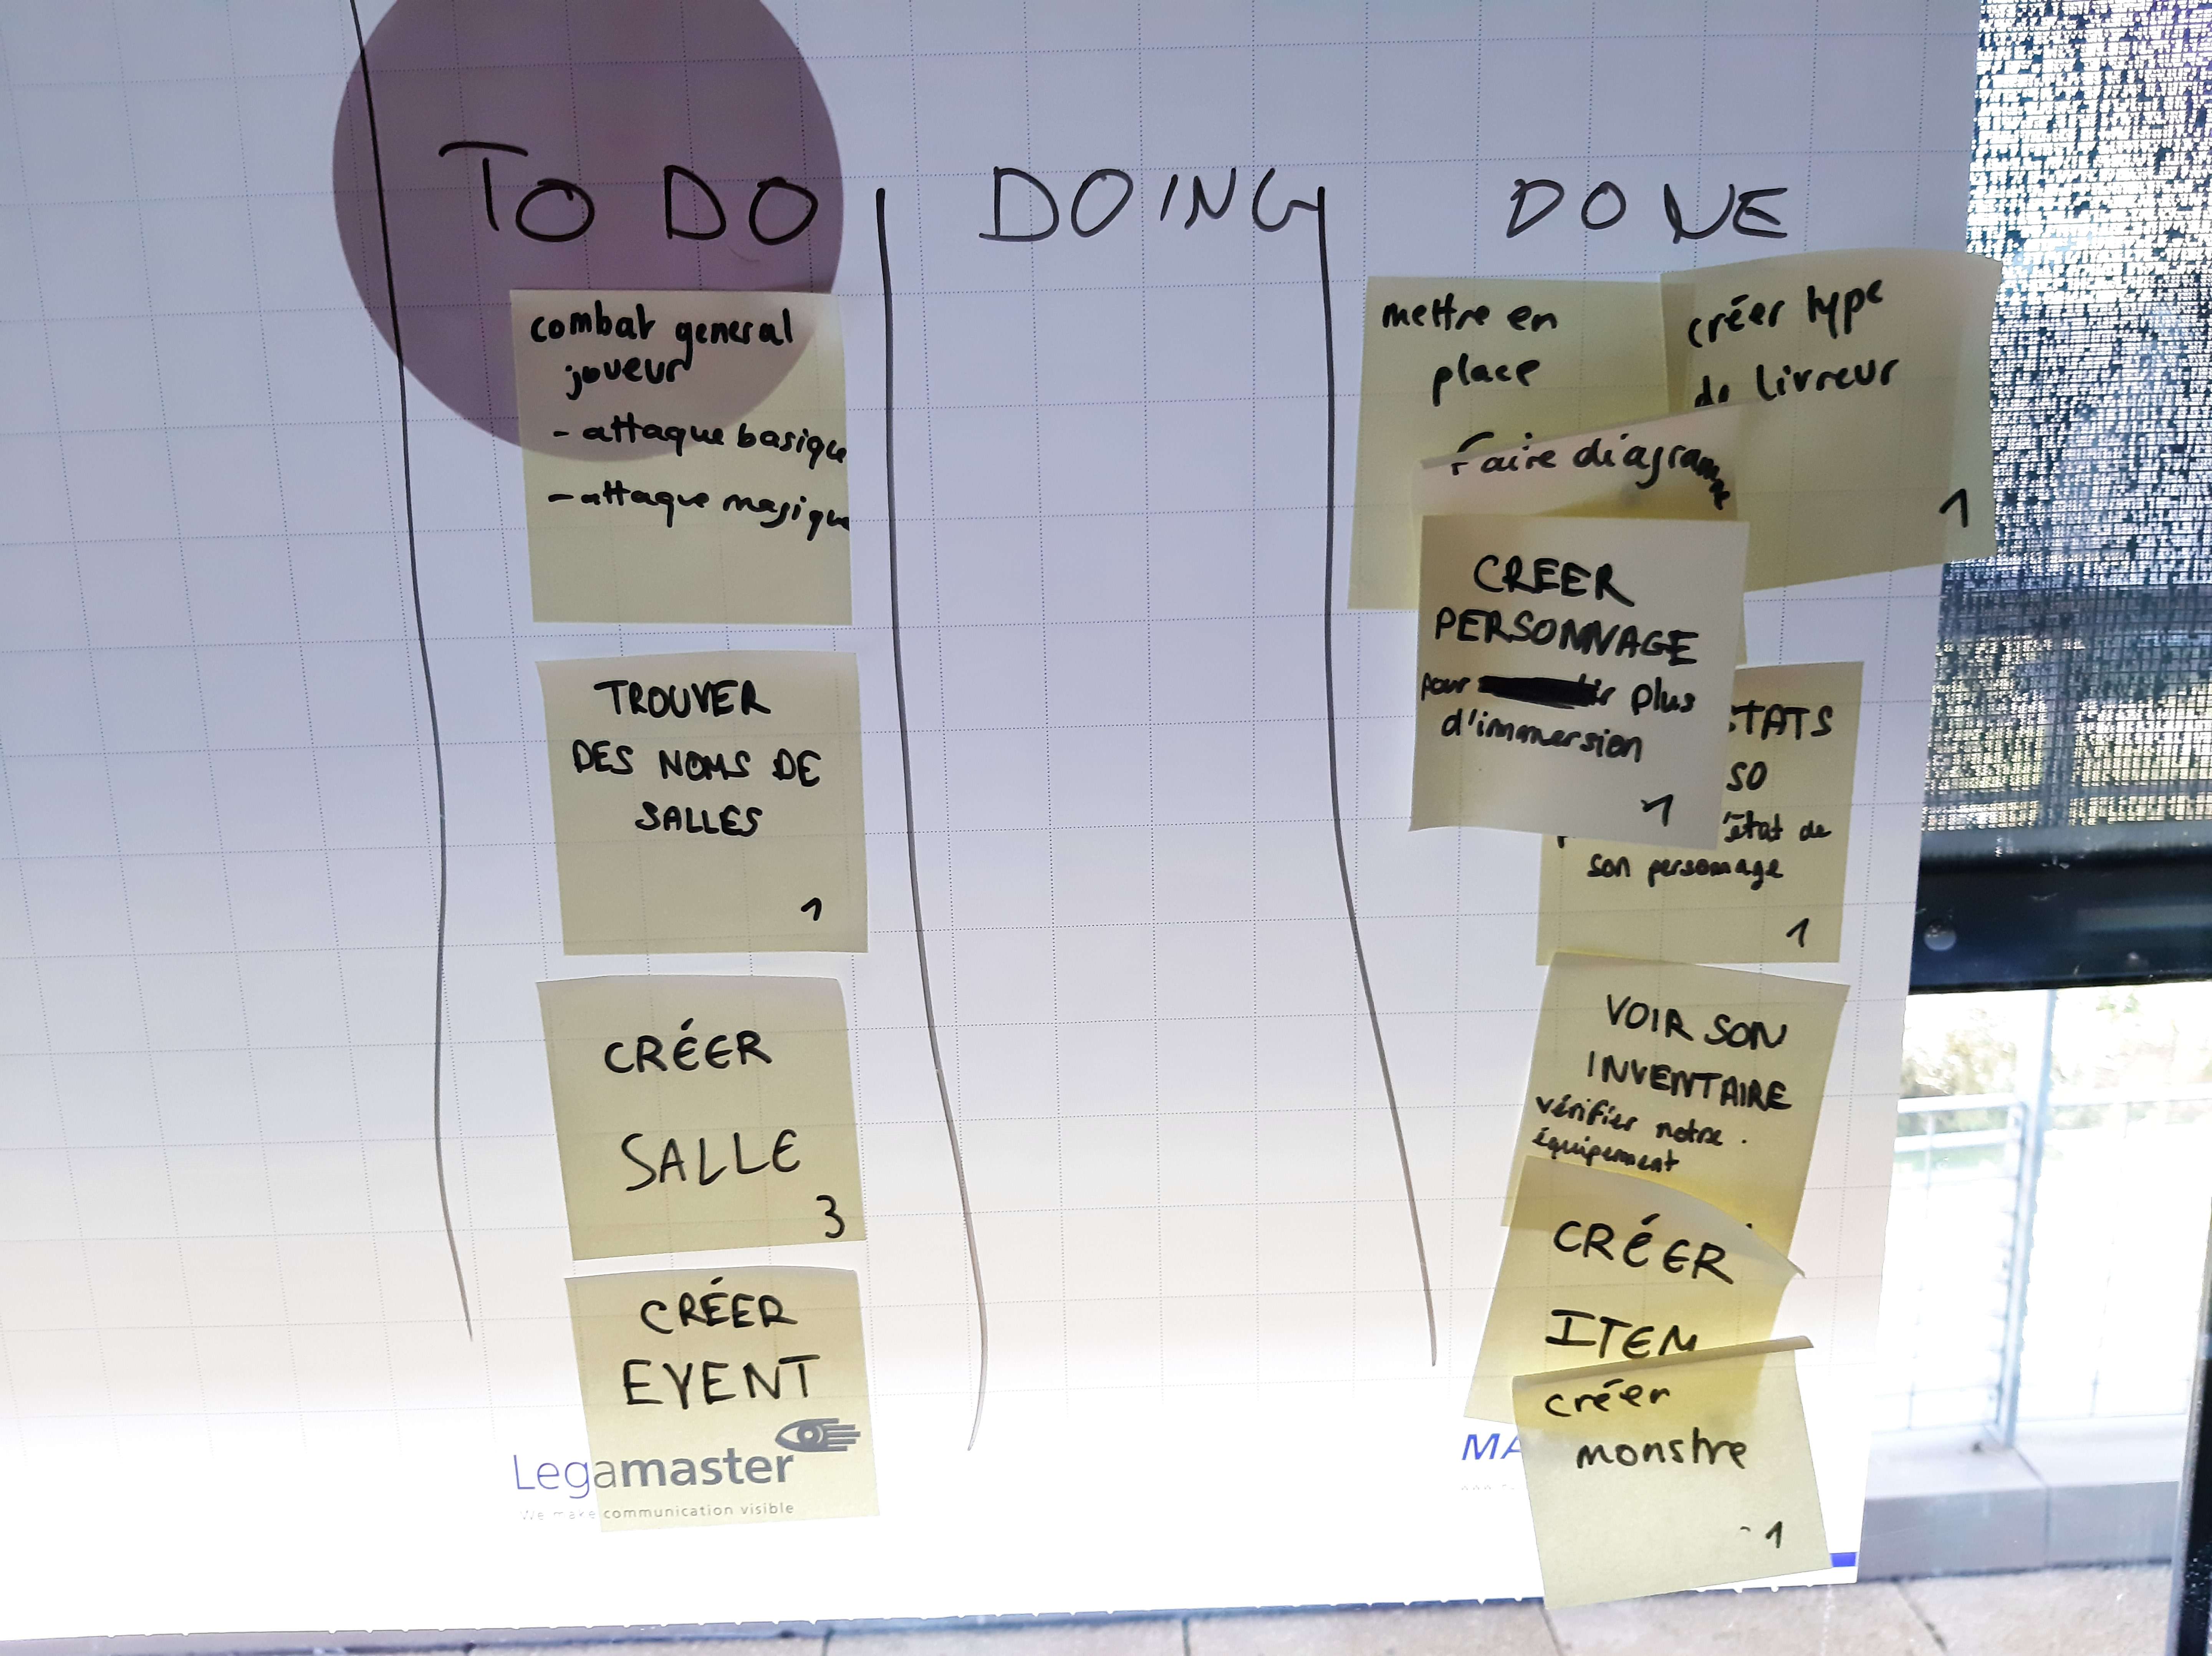 TO DO
DOING
DONE
combat general
joueur
- attaque basique
- attaque magique
TROUVER
DES NOMS DE
SALLES
1
CRÉER
SALLE
3
CRÉER
EVENT
Legamaster
We make communication visible
mettre en
place
créer type
de livreur
1
Faire diagramme
CREER
PERSONNAGE
pour plus
d'immersion
1
état de
son personnage
1
VOIR SON
INVENTAIRE
vérifier notre
équipement
CRÉER
ITEM
créer
monstre
1